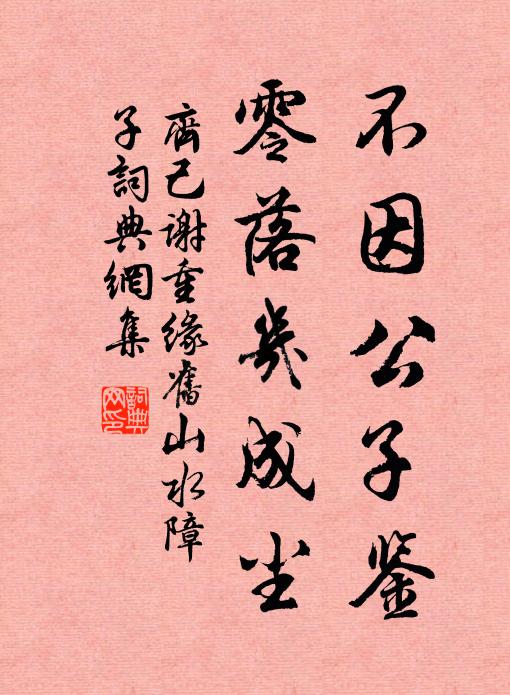 不因公子鉴
零落几成尘
齊己谢重缘舊山水障
子詞典網集
詞典
网印